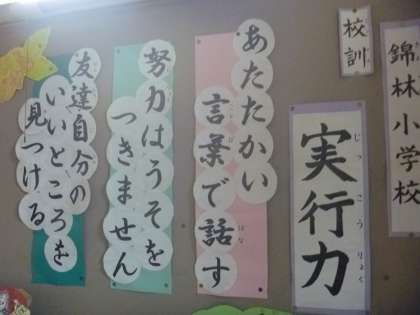 錦林小学校
校訓
実行力
じっこうりょく
あたたかい
言葉で話す
ことば
はな
努力はうそを
つきません
友達自分の
いいところを
見つける